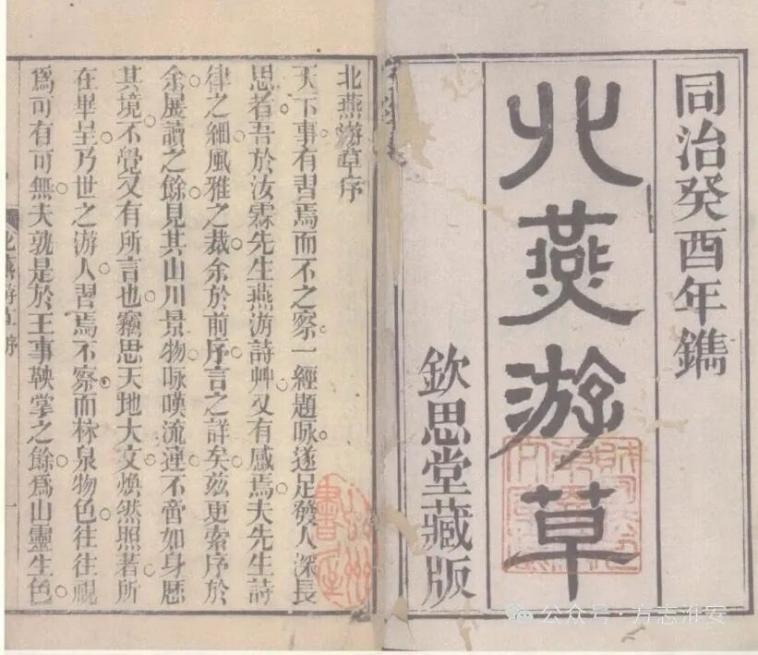 同治癸酉年鐫
北燕游草
欽思堂藏版
北燕游草序
天下事有習焉而不之察一經題咏遂足發人深長
思者吾於汝霖先生燕游詩艸又有感焉夫先生詩
律之細風雅之裁余於前序言之詳矣茲更索序於
余展讀之餘見其山川景物咏嘆流連不啻如身歷
其境不覺又有所言也竊思天地大文煥然照著所
在畢呈乃世之游人習焉不察而林泉物色往往視
爲可有可無夫孰是於王事鞅掌之餘爲山靈生色
北燕游草序 一
公众号·方志淮安